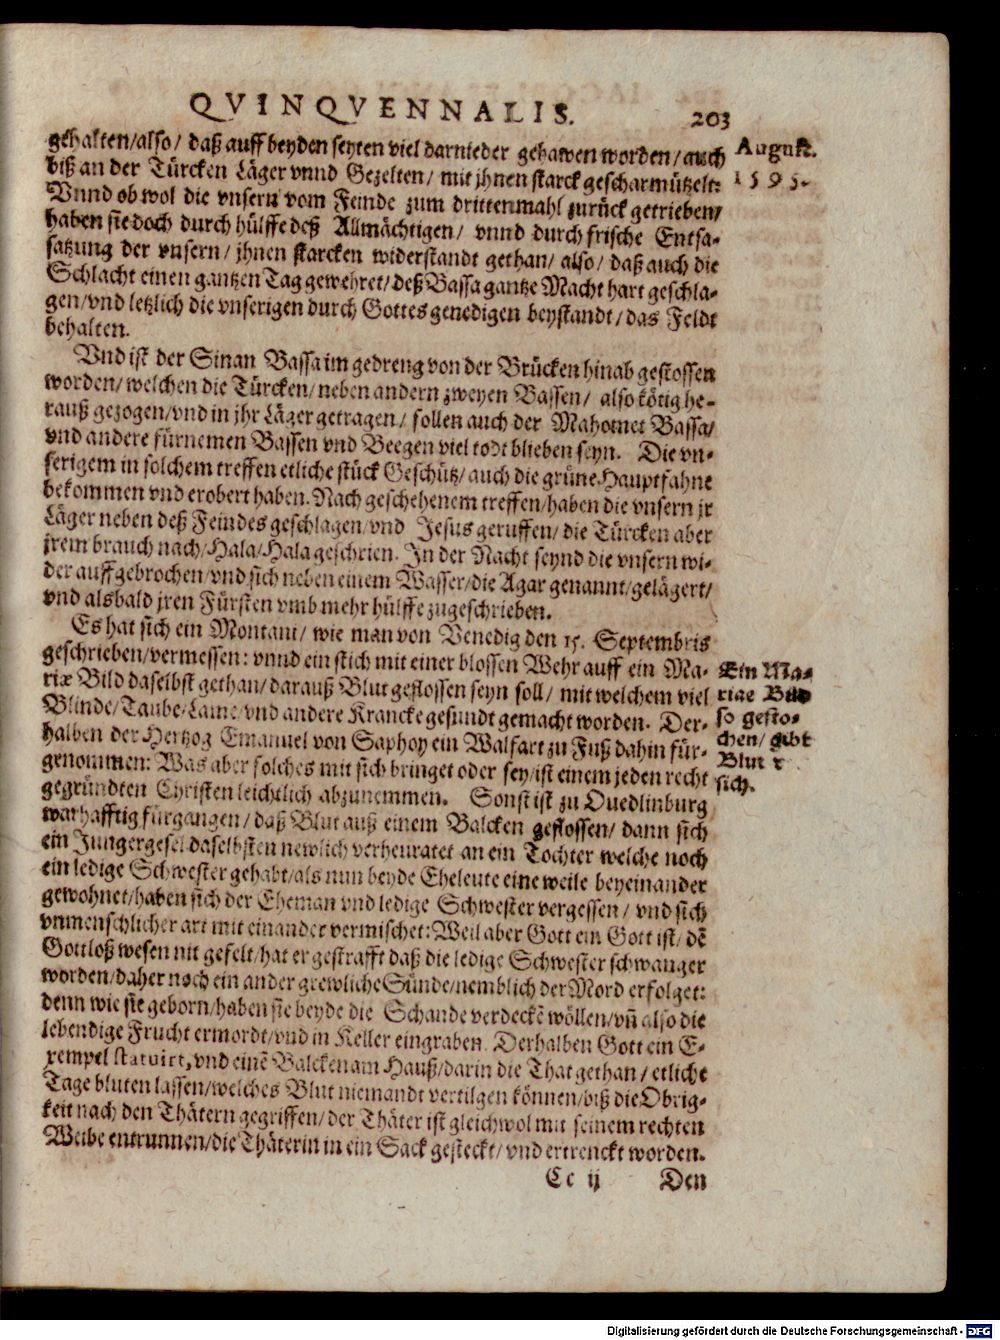 QVINQVENNALIS. 203
gehalten/also/ daß auff beyden seyten viel darnieder gehawen worden/ auch
biß an der Türcken Läger vnnd Gezelten/ mit jhnen starck gescharmützelt:
Vnnd ob wol die vnsern vom Feinde zum drittenmahl zurück getrieben/
haben sie doch durch hülffe deß Allmächtigen/ vnnd durch frische Entsa-
satzung der vnsern/ jhnen starcken widerstandt gethan/ also/ daß auch die
Schlacht einen gantzen Tag gewehret/ deß Bassa gantze Macht hart geschla-
gen/ vnd letzlich die vnserigen durch Gottes genedigen beystandt/ das Feldt
behalten.
August.
1595.
Vnd ist der Sinan Bassa im gedreng von der Brücken hinab gestossen
worden/ welchen die Türcken/ neben andern zweyen Bassen/ also kötig he-
rauß gezogen/ vnd in jhr Läger getragen/ sollen auch der Mahomet Bassa/
vnd andere fürnemen Bassen vnd Beegen viel todt blieben seyn. Die vn-
serigem in solchem treffen etliche stück Geschütz/ auch die grüne Hauptfahne
bekommen vnd erobert haben. Nach geschehenem treffen/ haben die vnsern jr
Läger neben deß Feindes geschlagen/ vnd Jesus geruffen/ die Türcken aber
jrem brauch nach/ Hala/ Hala geschrien. In der Nacht seynd die vnsern wi-
der auffgebrochen/ vnd sich neben einem Wasser/ die Agar genannt/ gelägert/
vnd alsbald jren Fürsten vmb mehr hülffe zugeschrieben.
Es hat sich ein Montani/ wie man von Venedig den 15. Septembris
geschrieben/ vermessen: vnnd ein stich mit einer blossen Wehr auff ein Ma-
riæ Bild daselbst gethan/ darauß Blut geflossen seyn soll/ mit welchem viel
Blinde/ Taube/ Lame/ vnd andere Krancke gesundt gemacht worden. Der-
halben der Hertzog Emanuel von Saphoy ein Walfart zu Fuß dahin für-
genommen: Was aber solches mit sich bringet oder sey/ ist einem jeden recht
gegründten Christen leichtlich abzunemmen. Sonst ist zu Quedlinburg
warhafftig fürgangen/ daß Blut auß einem Balcken geflossen/ dann sich
ein Jungergesel daselbsten newlich verheuratet an ein Tochter welche noch
ein ledige Schwester gehabt/ als nun beyde Eheleute eine weile beyeinander
gewohnet/ haben sich der Eheman vnd ledige Schwester vergessen/ vnd sich
vnmenschlicher art mit einander vermischet: Weil aber Gott ein Gott ist/ dẽ
Gottloß wesen nit gefelt/ hat er gestrafft daß die ledige Schwester schwanger
worden/ daher noch ein ander grewliche Sünde/ nemblich der Mord erfolget:
denn wie sie geborn/ haben sie beyde die Schande verdeckẽ wöllen/ vñ also die
lebendige Frucht ermordt/ vnd in Keller eingraben. Derhalben Gott ein E-
xempel statuirt, vnd einẽ Balcken am Hauß/ darin die That gethan/ etliche
Tage bluten lassen/ welches Blut niemandt vertilgen können/ biß die Obrig-
keit nach den Thätern gegriffen/ der Thäter ist gleichwol mit seinem rechten
Weibe entrunnen/ die Thäterin in ein Sack gesteckt/ vnd ertrenckt worden.
Ein Ma-
riae Bild
so gesto-
chen/ gibt
Blut
sich.
Cc ij Den
Digitalisierung gefördert durch die Deutsche Forschungsgemeinschaft - DFG